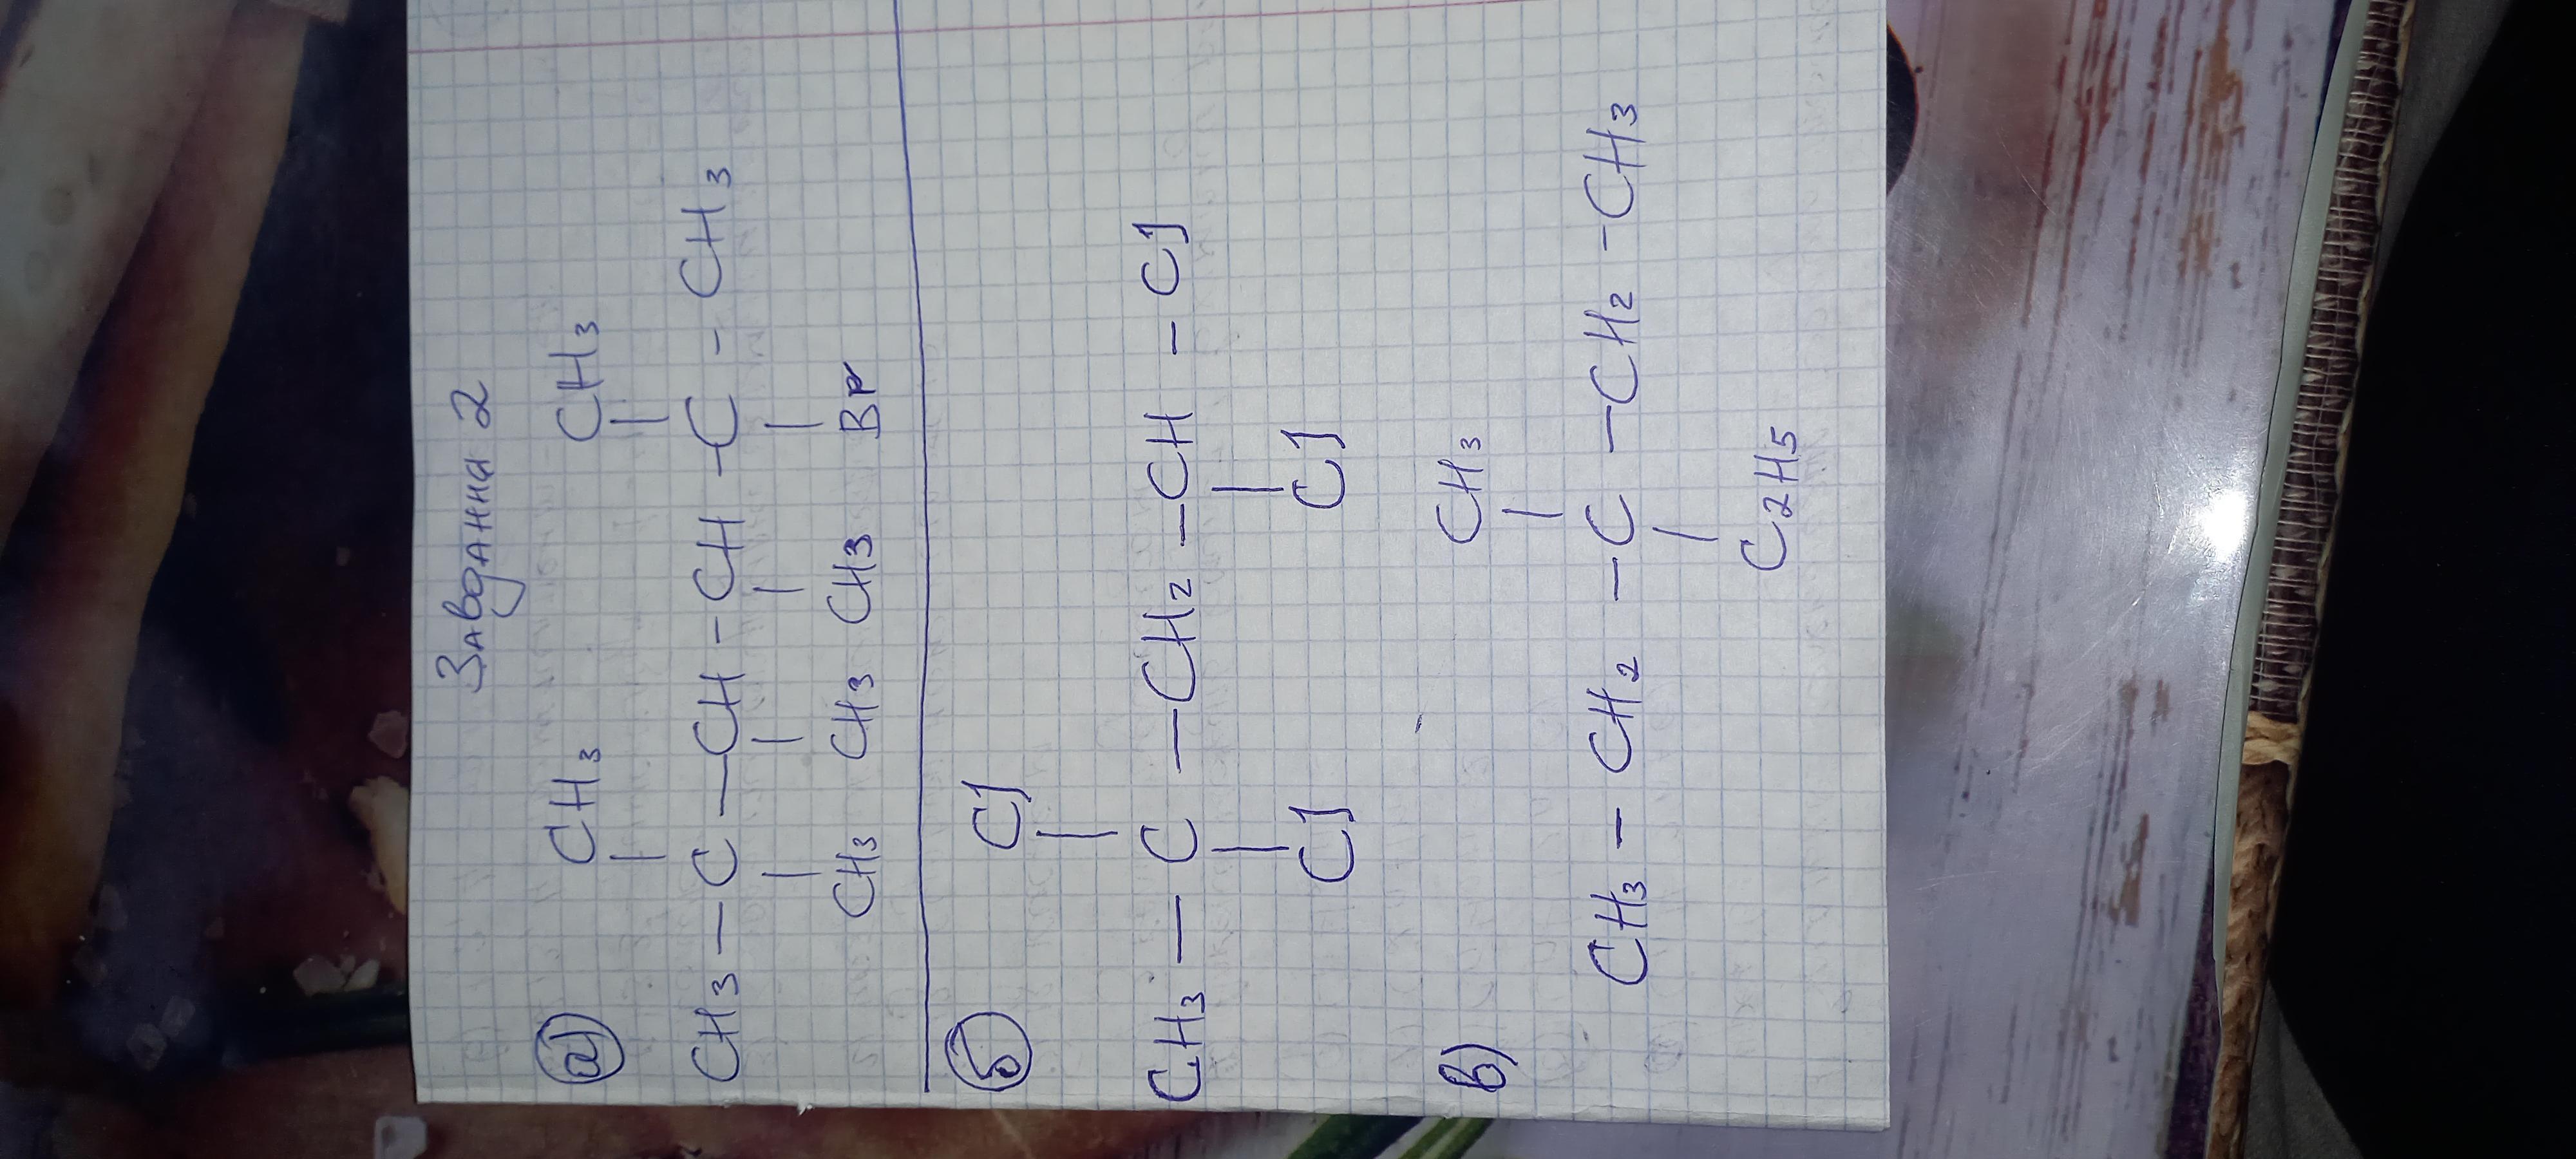 Завдання 2
а)
CH3 CH3
CH3 — C — CH - CH - C - CH3
CH3 CH3 CH3 Br
б
Cl
CH3 — C — CH2 — CH — Cl
Cl Cl
в)
CH3
CH3 — CH2 — C — CH2 - CH3
C2H5